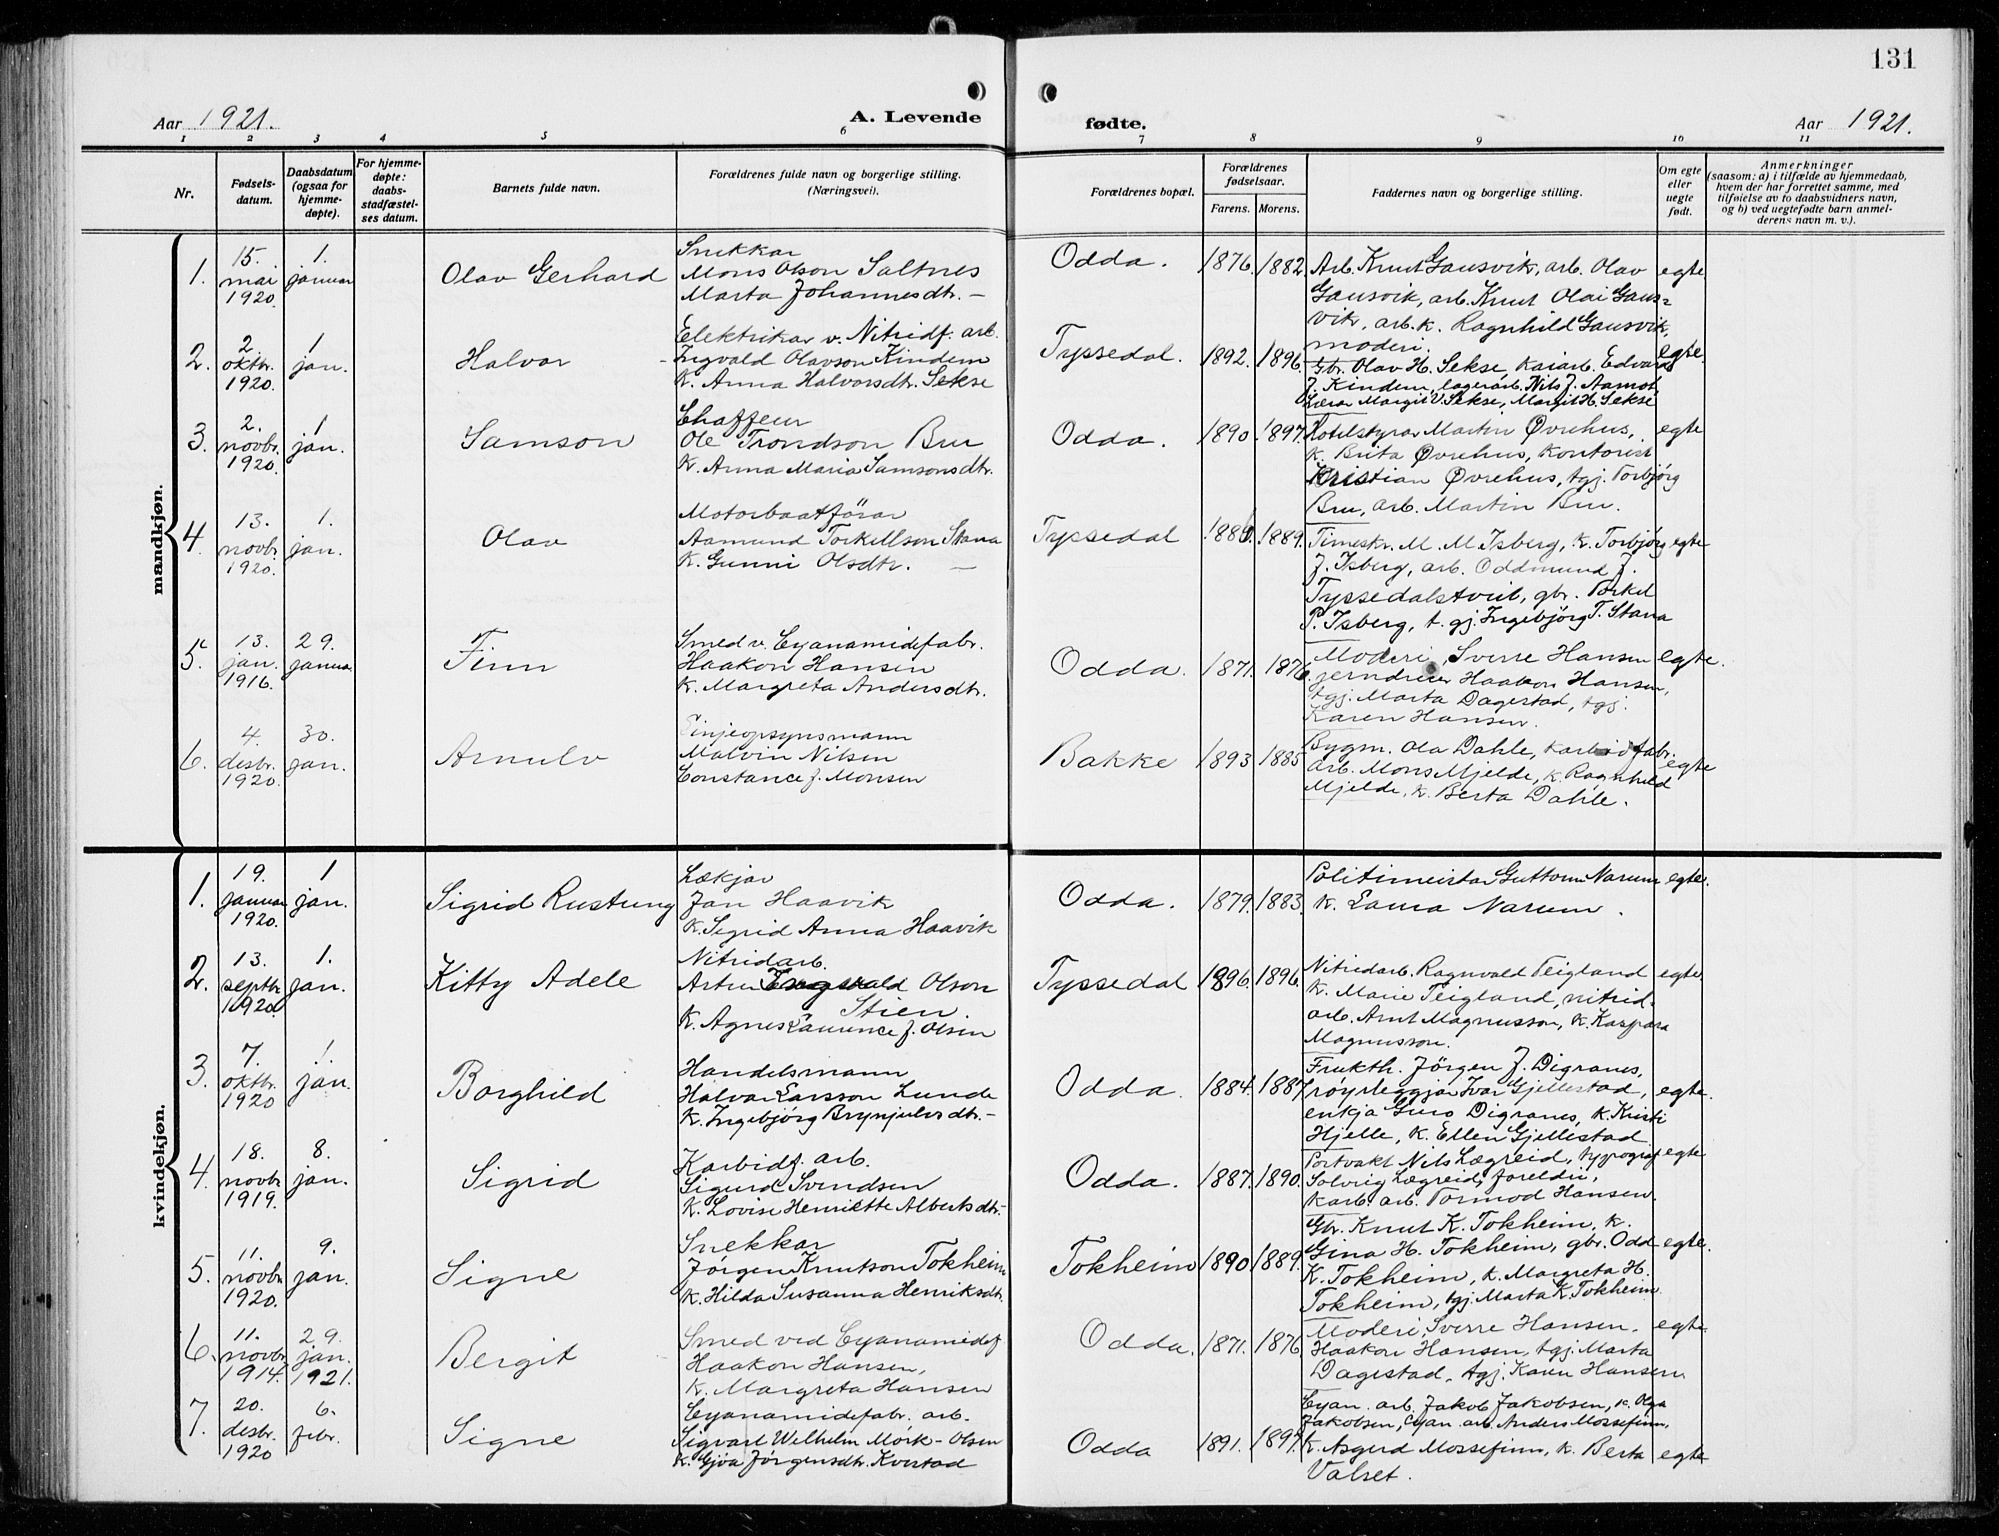 131
Aar 1921. A. Levende fødte. Aar 1921.
1 2 3 4 5 6 7 8 9 10 11
Nr.
Fødsels-
datum.
Daabsdatum
(ogsaa for
hjemme-
døpte).
For hjemme-
døpte:
daabs-
stadfæstel-
ses datum.
Barnets fulde navn.
Forældrenes fulde navn og borgerlige stilling.
(Næringsvei).
Forældrenes bopæl.
Forældrenes
fødselsaar.
Farens. Morens.
Faddernes navn og borgerlige stilling.
Om egte
eller
uegte
født.
Anmerkninger
(saasom: a) i tilfælde av hjemmedaab,
hvem der har forrettet samme, med
tilføielse av to daabsvidners navn,
og b) ved uegtefødte barn anmel-
derens navn m. v.).
mandkjøn.
1.
15.
mai
1920.
1.
januar
Olav Gerhard
Snekkar
Mons Olson Saltnes
Marta Johannesdtr. —
Odda.
1876. 1882.
Arb. Knut Gausvik, arb. Olav
Gausvik, arb. Knut Olai Gaus=
vik, arb. k. Ragnhild Gausvik,
moderi.
egte
2.
2.
oktbr.
1920.
1
jan.
Halvar
Elektrikar v. Nitridf. arb.
Ingvald Olavson Kindem
K. Anna Halvorsdtr. Sekse
Tyssedal.
1892. 1896.
Gbr. Olav H. Sekse, Kaiarb. Edvard
J. Kindem, lagerarb. Nils J. Aamot
Lærar Margit V. Sekse, Margit H. Sekse
egte.
3.
2.
novbr.
1920.
1
jan.
Samson
Chaffeur
Ole Trondson Bru
K. Anna Maria Samsonsdtr.
Odda.
1890. 1897.
Hotelstyrar Martin Øvrehus,
K. Brita Øvrehus, Kontorist
Kristian Øvrehus, tgj. Torbjørg
Bru, arb. Martin Bru.
egte
4.
13.
novbr.
1920.
1.
jan.
Olav
Motorbaatförar
Aamund Torkellson Stana
K. Gunni Olsdtr. —
Tyssedal
1889.
Timeskr. M. M. Isberg, K. Torbjørg
J. Isberg, arb. Oddmund J.
Tyssedalstveit, gbr. Torkel
P. Isberg, t. gj. Ingebjørg T. Stana
egte
5.
13.
jan.
1916.
29.
januar
Finn
Smed v. Cyanamidefabr.
Haakon Hansen
K. Margreta Andersdtr.
Odda.
1871. 1876.
Moderi, Sverre Hansen
jerndreier Haakon Hansen,
tgj. Marta Dagestad, tgj.
Karen Hansen.
egte.
6.
4.
desbr.
1920.
30.
jan.
Arnulv
Linjeopsynsmann
Malvin Nilsen
Constance J. Monsen
Bakke
1893 1885
Bygm. Ola Dahle, Karbidfabr.
arb. Mons Mjelde, K. Ragnhild
Mjelde, K. Berta Dahle.
egte
kvindekjøn.
1.
19.
januar
1920.
1
jan.
Sigrid Rustung
Lækjar
Jan Haavik
K. Sigrid Anna Haavik
Odda.
1879. 1883.
Politimeistar Guttorm Narum
K. Laura Narum.
egte.
2.
13.
septbr.
1920.
1.
jan.
Kitty Adele
Nitridarb.
Artur Olson
Stien.
K. Agnes Laurence J. Olsen
Tyssedal
1896. 1896.
Nitridarb. Ragnvald Teigland
K. Marie Teigland, nitrid-
arb. Arnt Magnusson, K. Kaspara
Magnusson.
egte.
3.
7.
oktbr.
1920
1.
jan.
Borghild
Handelsmann
Halvar Larsson Lunde
K. Ingebjörg Brynjulvsdtr.—
Odda.
1884. 1887.
Frukth. Jörgen J. Digranes,
røyrleggjar Ivar Gjellestad,
enkja Guro Digranes, K. Kristi
Hjelle, K. Ellen Gjellestad.
egte.
4.
18.
novbr.
1919.
8.
jan.
Sigrid
Karbidf. arb.
Sigurd Svendsen
K. Lovise Henriktte Albertsdtr.
Odda.
1887. 1890.
Portvakt Nils Lægreid, typograf
Solveig Lægreid, foreldri,
Karb. arb. Tormod Hansen.
egte
5.
11.
novbr.
1920.
9.
jan.
Signe
Snekkar
Jörgen Knutson Tokheim
K. Hilda Susanna Henriksdtr.
Tokheim
1890 1889.
Gbr. Knut K. Tokheim, K.
Gina H. Tokheim, gbr. Odd
K. Tokheim, K. Margreta H.
Tokheim, tgj. Marta K. Tokheim
egte.
6.
11.
novbr.
1914.
29.
jan.
1921.
Bergit
Smed ved Cyanamidef.
Haakon Hansen,
K. Margreta Hansen
Odda.
1871. 1876.
Moderi, Sverre Hansen.
Haakon Hansen, tgj. Marta
Dagestad, tgj. Karen Hansen
egte.
7.
20.
desbr.
1920
6.
febr.
Signe
Cyanamidefabr. arb.
Sigvart Wilhelm Mörk-Olsen
K. Gjöa Jörgensdtr. Kvestad
Odda
1891. 1897.
Cyan. arb. Jakob Jakobsen, K. Olga
Jakobsen, Cyan. arb. Anders Mossefinn,
K. Asgerd Mossefinn, K. Berta
Valset.
egte